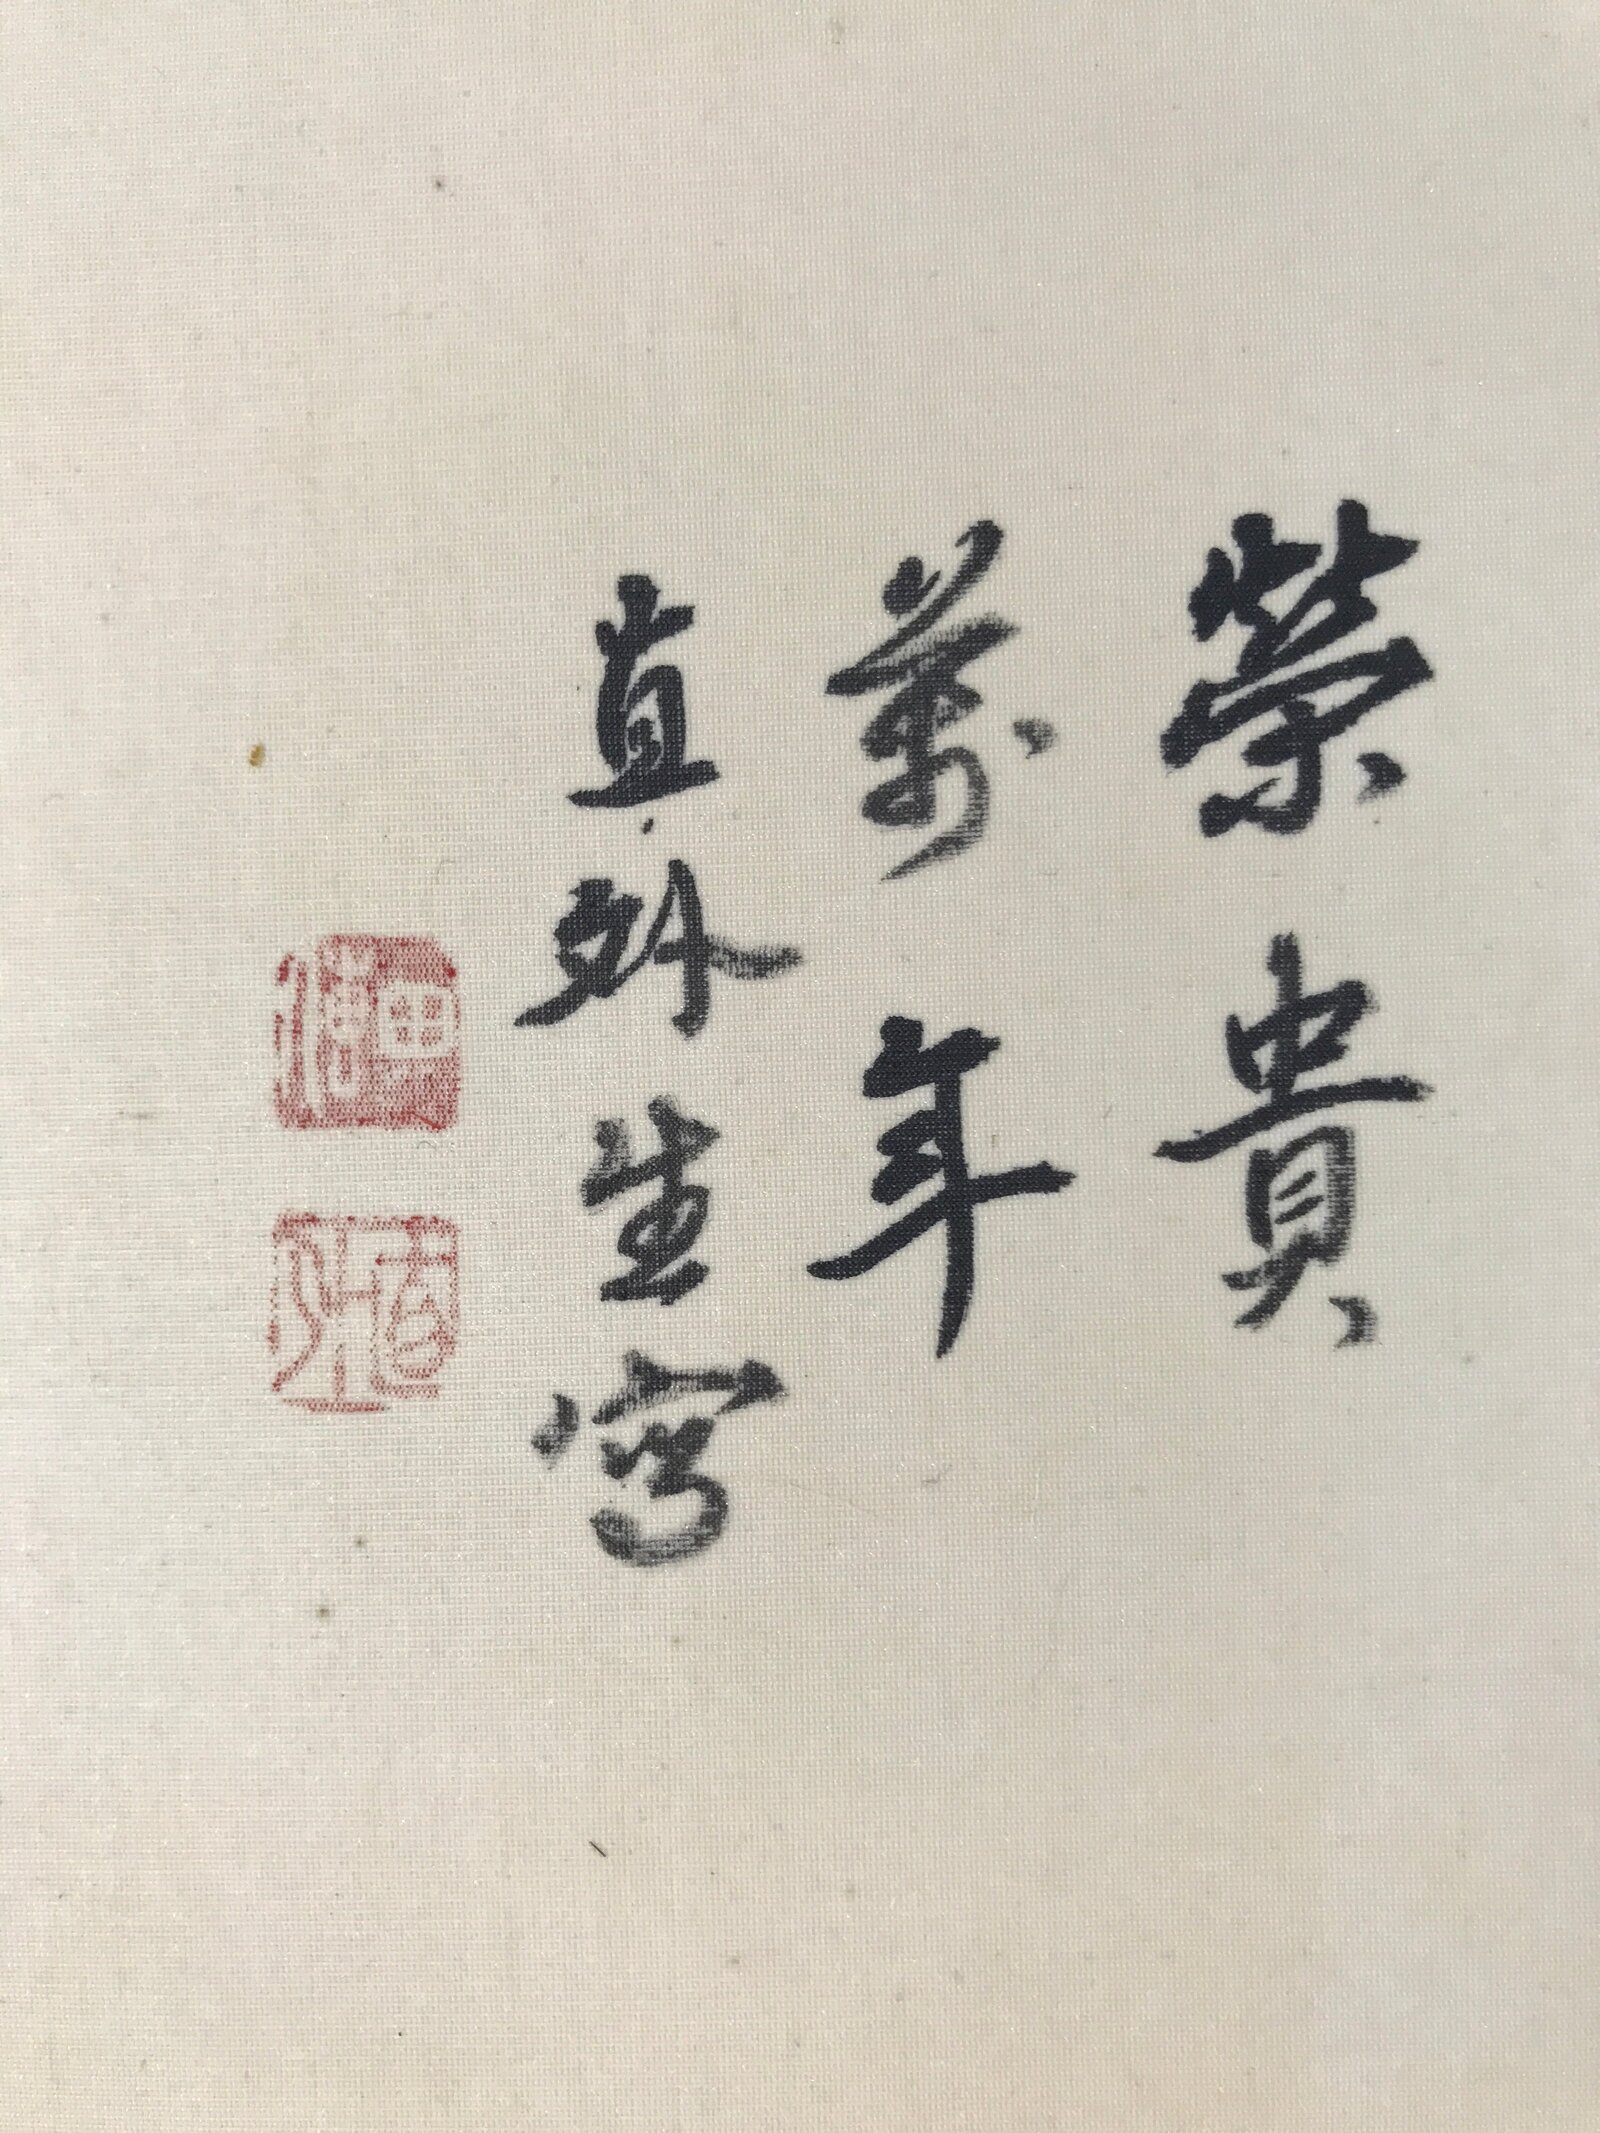 榮貴
萬年
直外生寫